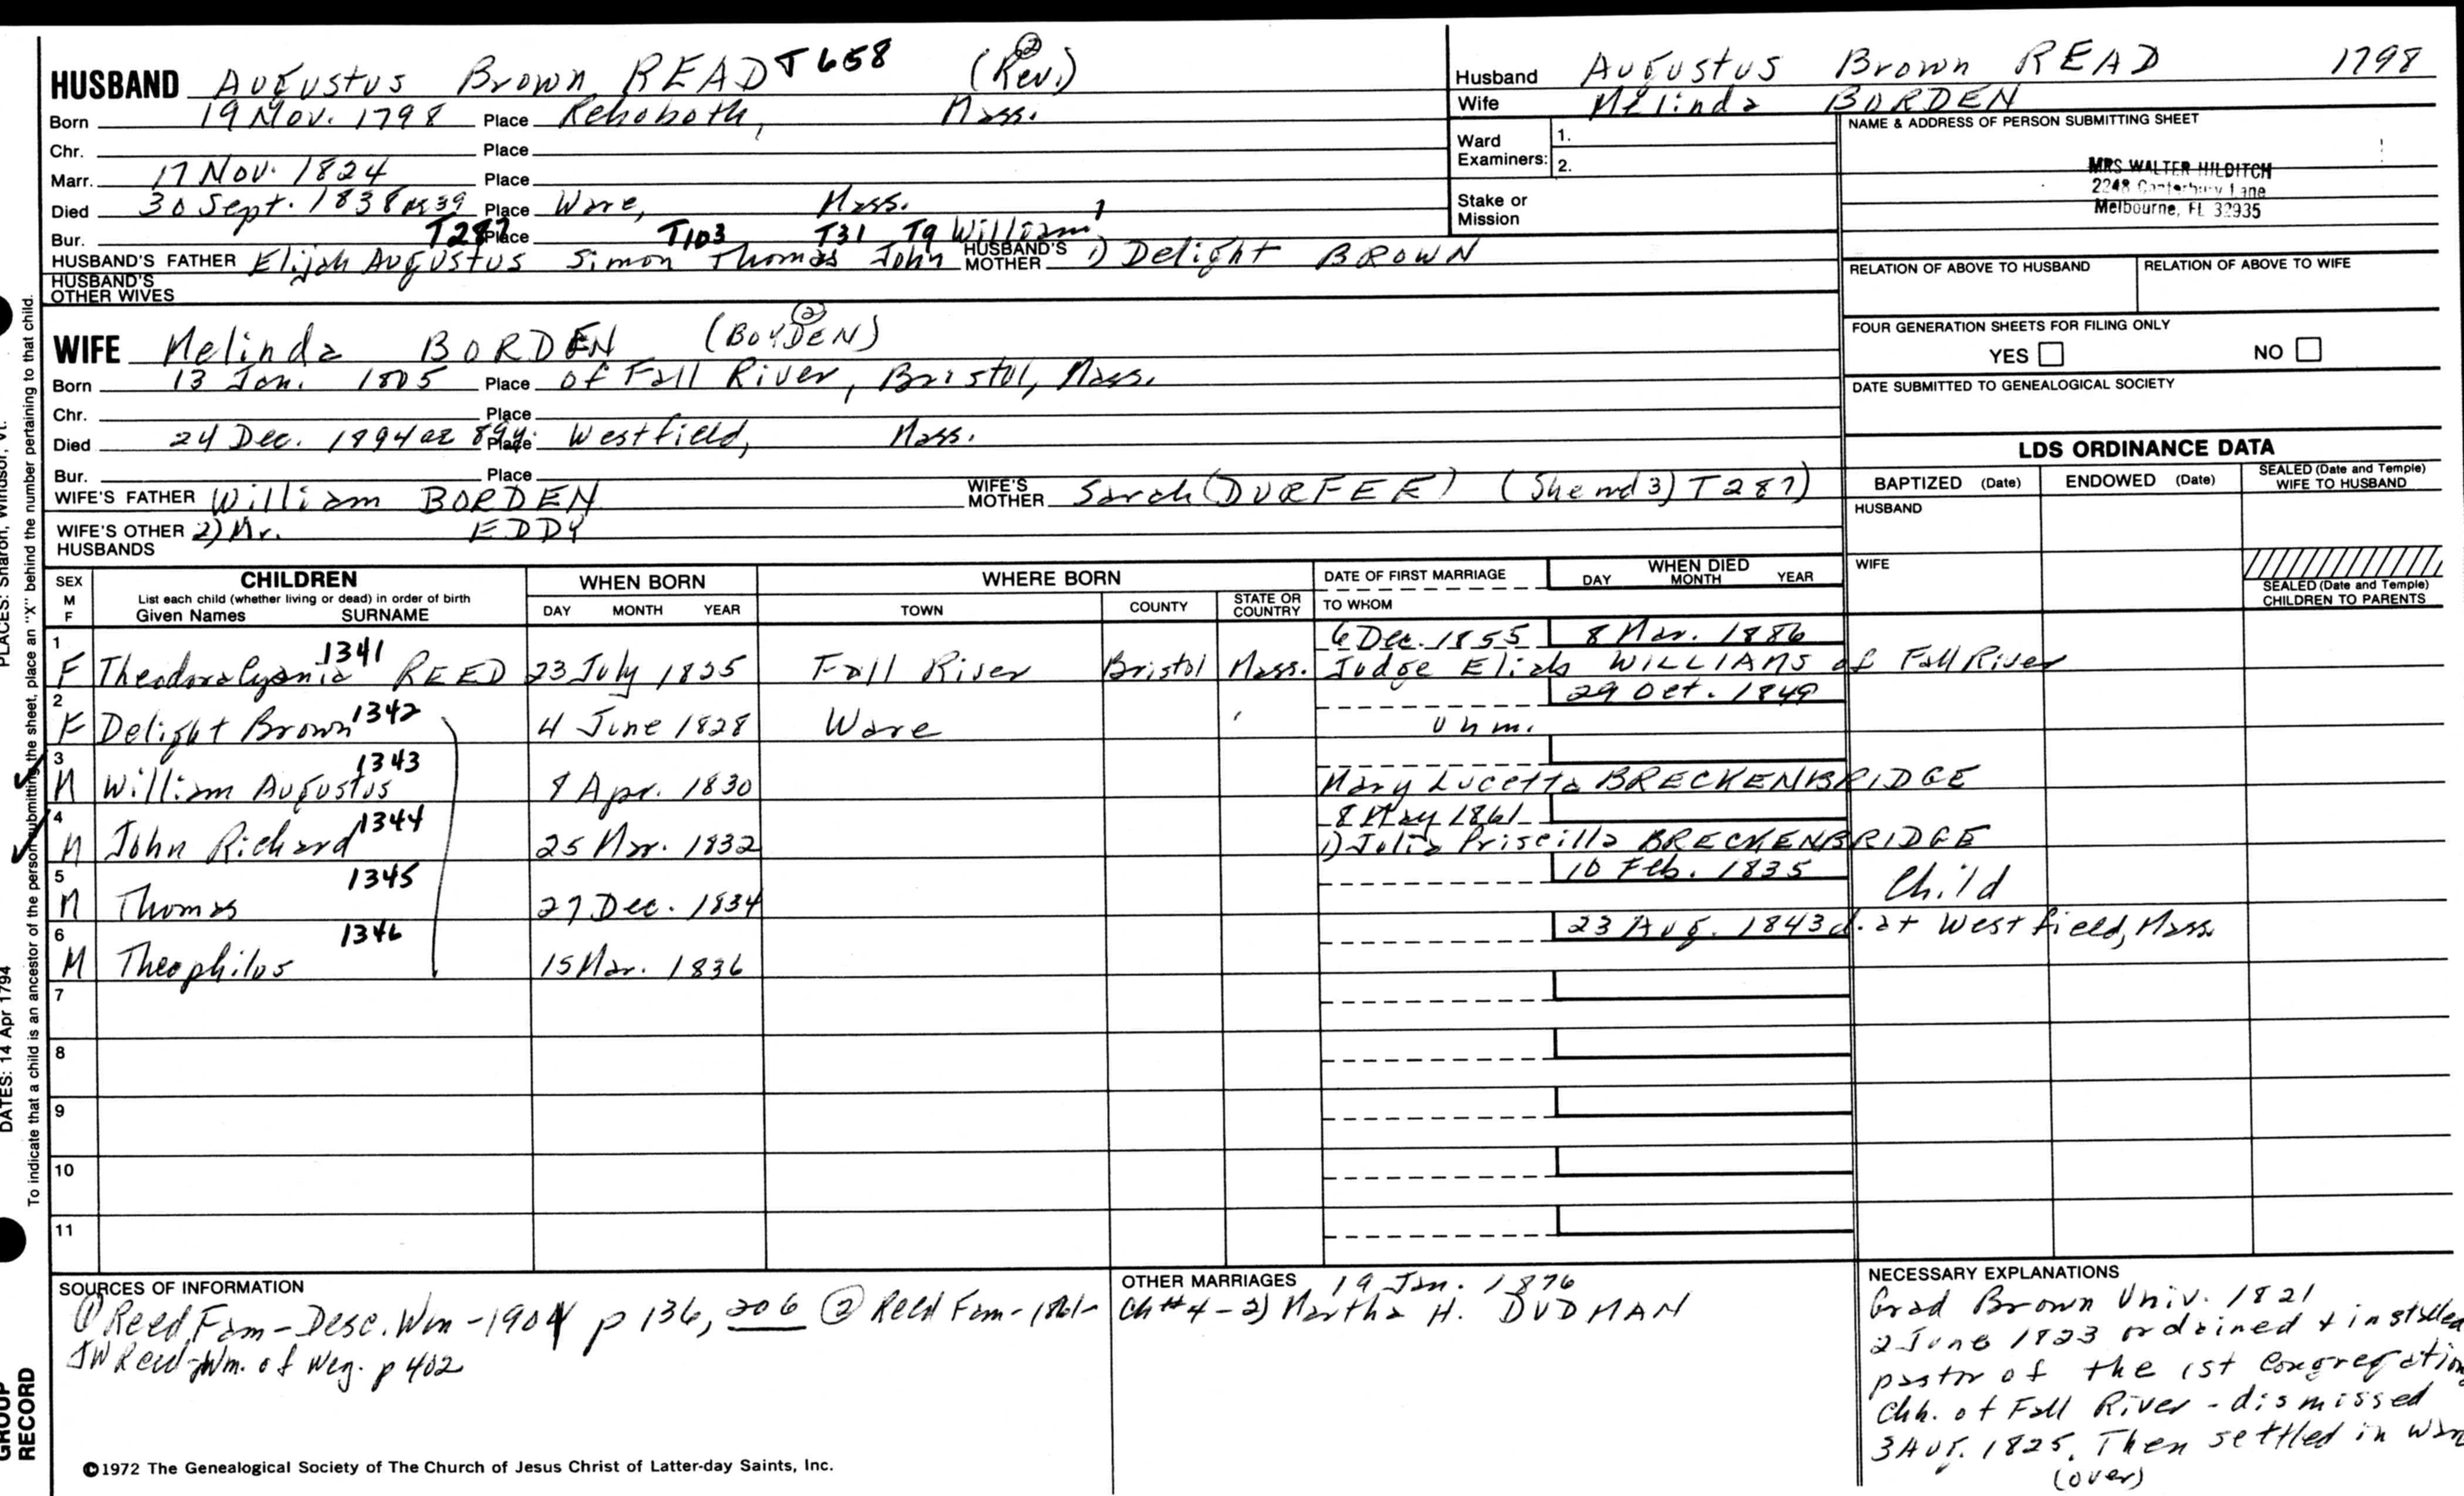 HUSBAND Augustus Brown READ T658 (Rev.) ②
Born 19 Nov. 1798 Place Rehoboth, Mass.
Chr. Place
Marr. 17 Nov. 1824 Place
Died 30 Sept. 1838 ae 39 Place Ware, Mass.
Bur. Place
T287 T103 T31 T9 William 1
HUSBAND'S FATHER Elijah Augustus Simon Thomas John HUSBAND'S MOTHER 1) Delight BROWN
HUSBAND'S OTHER WIVES
WIFE Melinda BORDEN (BOYDEN) ②
Born 13 Jan. 1805 Place of Fall River, Bristol, Mass.
Chr. Place
Died 24 Dec. 1894 ae 89y. Place Westfield, Mass.
Bur. Place
WIFE'S FATHER William BORDEN WIFE'S MOTHER Sarah (DURFEE) (She md 3) T287)
WIFE'S OTHER HUSBANDS 2) Mr. EDDY
Husband Augustus Brown READ 1798
Wife Melinda BORDEN
Ward Examiners: 1.
2.
Stake or Mission
NAME & ADDRESS OF PERSON SUBMITTING SHEET
MRS WALTER HILDITCH
2248 Canterbury Lane
Melbourne, FL 32935
RELATION OF ABOVE TO HUSBAND RELATION OF ABOVE TO WIFE
FOUR GENERATION SHEETS FOR FILING ONLY
YES NO
DATE SUBMITTED TO GENEALOGICAL SOCIETY
LDS ORDINANCE DATA
BAPTIZED (Date) ENDOWED (Date) SEALED (Date and Temple) WIFE TO HUSBAND
HUSBAND
WIFE
SEALED (Date and Temple) CHILDREN TO PARENTS
SEX M F
CHILDREN
List each child (whether living or dead) in order of birth
Given Names SURNAME
WHEN BORN
DAY MONTH YEAR
WHERE BORN
TOWN COUNTY STATE OR COUNTRY
DATE OF FIRST MARRIAGE
TO WHOM
WHEN DIED
DAY MONTH YEAR
1 1341 6 Dec. 1855 8 Mar. 1886
F REED 23 July 1825 Fall River Bristol Mass. Judge Elijah WILLIAMS of Fall River
2 1342 29 Oct. 1849
F Delight Brown 4 June 1828 Ware unm.
3 1343
M William Augustus 8 Apr. 1830 Mary Lucetta BRECKENBRIDGE
4 1344 8 May 1861
M John Richard 25 Mar. 1832 1) Julia Priscilla BRECKENBRIDGE
5 1345 10 Feb. 1835 Child
M Thomas 27 Dec. 1834
6 1346 23 Aug. 1843 d. at Westfield, Mass.
M Theophilus 15 Mar. 1836
7
8
9
10
11
SOURCES OF INFORMATION
① Reed Fam-Desc. Wm-1904 p 136, 206 ② Reed Fam-1861-
JW Reed-Wm. of Wey. p 402
OTHER MARRIAGES 19 Jan. 1876
Ch #4-2) Martha H. DUDMAN
NECESSARY EXPLANATIONS
Grad Brown Univ. 1821
2 June 1823 ordained & installed
pastor of the 1st Congregation
Chh. of Fall River - dismissed
3 Aug. 1825. Then settled in War
(over)
©1972 The Genealogical Society of The Church of Jesus Christ of Latter-day Saints, Inc.
PLACES: Sharon, Windsor, Vt.
DATES: 14 Apr 1794
To indicate that a child is an ancestor of the person submitting the sheet, place an "X" behind the number pertaining to that child.
GROUP
RECORD